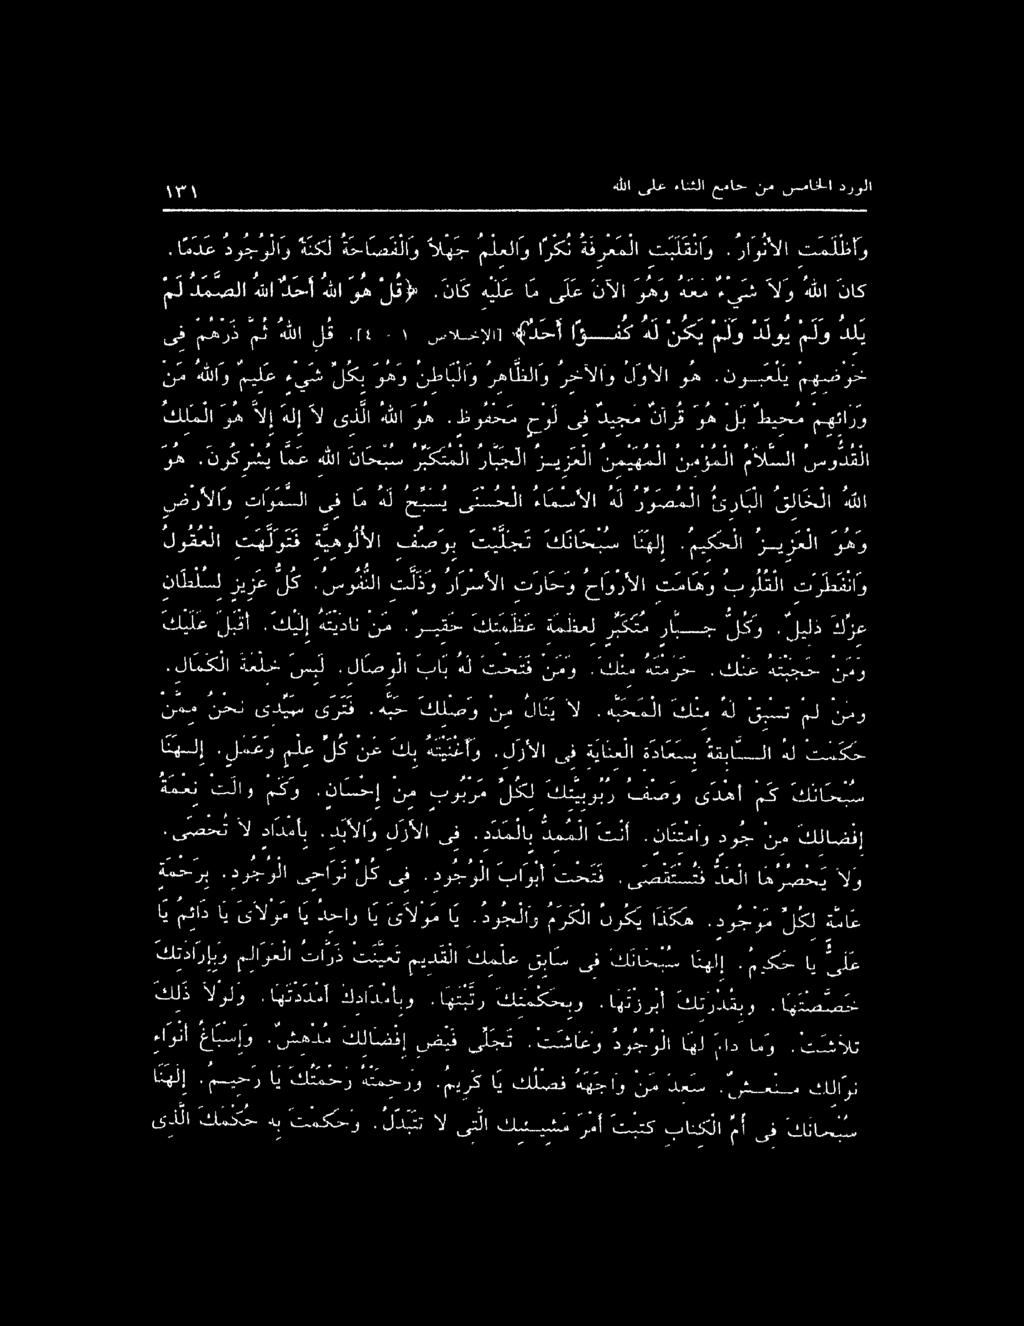 الورد الخامس من جامع الثناء على الله
١٣١
وَأَظْلَمَت الأَنْوَارُ. وَانْقَلَبَت الْمَعْرِفَةُ نُكْرًا وَالعلْمُ جَهْلاً وَالْفَصَاحَةُ لُكْنَةً وَالْوُجُودُ عَدَمًا.
كَانَ اللهُ وَلاَ شَيْءٌ مَعَهُ وَهُوَ الآنَ عَلَى مَا عَلَيْهِ كَانَ. ﴿قُلْ هُوَ اللهُ أَحَدٌ اللهُ الصَّمَدُ لَمْ
يَلِدْ وَلَمْ يُولَدْ وَلَمْ يَكُنْ لَهُ كُفُـــؤًا أَحَدٌ﴾ [الإخلاص ١ - ٤]. قُلِ اللهُ ثُمَّ ذَرْهُمْ فِى
خَوْضِهِمْ يَلْعَبُـــون. هُوَ الأَوَّلُ وَالآخِرُ وَالظَّاهِرُ وَالْبَاطِنُ وَهُوَ بِكُلِّ شَيْءٍ عَلِيمٌ وَاللهُ مِنْ
وَرَائِهِمْ مُحِيطٌ بَلْ هُوَ قُرْآنٌ مَجِيدٌ فِى لَوْحٍ مَحْفُوظ. هُوَ اللهُ الَّذِى لاَ إِلَهَ إِلاَّ هُوَ الْمَلِكُ
الْقُدُّوسُ السَّلاَمُ الْمُؤْمِنُ الْمُهَيْمِنُ الْعَزِيـزُ الْجَبَّارُ الْمُتَكَبِّرُ سُبْحَانَ اللهِ عَمَّا يُشْرِكُونَ. هُوَ
اللهُ الْخَالِقُ الْبَارِئُ الْمُصَوِّرُ لَهُ الأَسْمَاءُ الْحُسْنَى يُسَبِّحُ لَهُ مَا فِى السَّمَوَاتِ وَالأَرْضِ
وَهُوَ الْعَزِيـزُ الْحَكِيمُ. إِلهَنَا سُبْحَانَكَ تَجَلَّيْتَ بِوَصْفِ الأُلُوهِيَّةِ فَتَوَلَّهَتِ الْعُقُولُ
وَانْفَطَرَتِ الْقُلُوبُ وَهَامَتِ الأَرْوَاحُ وَحَارَتِ الأَسْرَارُ وَذَلَّتِ النُّفُوسُ. كُلُّ عَزِيزٍ لِسُلْطَانِ
عِزِّكَ ذَلِيلٌ. وَكُلُّ جَـــبَّارٍ مُتَكَبِّرٍ لِعَظَمَةِ عَظَمَتِكَ حَقِيـرٌ. مَنْ نَادَيْتَهُ إِلَيْكَ. أَقْبَلَ عَلَيْكَ
وَمَنْ حَجَبْتَهُ عَنْكَ. حَرَمْتَهُ مِنْكَ. وَمَنْ فَتَحْتَ لَهُ بَابَ الْوِصَالِ. لَبِسَ خِلْعَةَ الْكَمَالِ.
وَمَنْ لَمْ تَسْبِقْ لَهُ مِنْكَ الْمَحَبَّه. لاَ يَنَالُ مِنْ وَصْلِكَ حَبَّه. فَتَرَى سَيِّدِى نَحْنُ مِمَّنْ
حَكَمْتَ لَهُ الـــسَّابِقَةُ بِسَعَادَةِ الْعِنَايَةِ فِى الأَزَلِ. وَأَغْنَيْتَهُ بِكَ عَنْ كُلِّ عِلْمٍ وَعَمَلٍ. إِلـــهَنَا
سُبْحَانَكَ كَمْ أَهْدَى وَصْفُ رُبُوبِيَّتِكَ لِكُلِّ مَرْبُوبٍ مِنْ إِحْسَانٍ. وَكَمْ وَالَتْ نِعْمَةُ
إِفْضَالِكَ مِنْ جُودٍ وَامْتِنَانٍ. أَنْتَ الْمُمِدُّ بِالْمَدَدِ. فِى الأَزَلِ وَالأَبَدِ. بِأَمْدَادٍ لاَ تُحْصَى.
وَلاَ يَحْصُرُهَا الْعَدُّ فَتُسْتَقْصَى. فَتَحْتَ أَبْوَابَ الْوُجُودِ. فِى كُلِّ نَوَاحِى الْوُجُودِ. بِرَحْمَةٍ
عَامَّةٍ لِكُلِّ مَوْجُودٍ. هَكَذَا يَكُونُ الْكَرَمُ وَالْجُودُ. يَا مَوْلاَىَ يَا وَاحِدُ يَا مَوْلاَىَ يَا دَائِمُ يَا
عَلِىُّ يَا حَكِيمُ. إِلهَنَا سُبْحَانَكَ فِى سَابِقِ عِلْمِكَ الْقَدِيمِ تَعَيَّنَتْ ذَرَّاتُ الْعَوَالِمِ وَبِإِرَادَتِكَ
خَصَّصْتَهَا. وَبِقُدْرَتِكَ أَبْرَزْتَهَا. وَبِحِكْمَتِكَ رَتَّبْتَهَا. وَبِأَمْدَادِكَ أَمْدَدْتَهَا. وَلَوْلاَ ذَلِكَ
تَلاَشَتْ. وَمَا دَامَ لَهَا الْوُجُودُ وَعَاشَتْ. تَجَلِّى فَيْضِ إِفْضَالِكَ مُدْهِشٌ. وَإِسْبَاغُ أَنْوَاءِ
نَوَالِكَ مُـــنْعِـــشٌ. سَعِدَ مَنْ وَاجَهَهُ فَضْلُكَ يَا كَرِيمُ. وَرَحِمَتْهُ رَحْمَتُكَ يَا رَحِيـمُ. إِلهَنَا
سُبْحَانَكَ فِى أُمِّ الْكِتَابِ كَتَبْتَ أَمْرَ مَشِيـــئَتِكَ الَّتِى لاَ تَتَبَدَّلُ. وَحَكَمْتَ بِهِ حُكْمَكَ الَّذِى